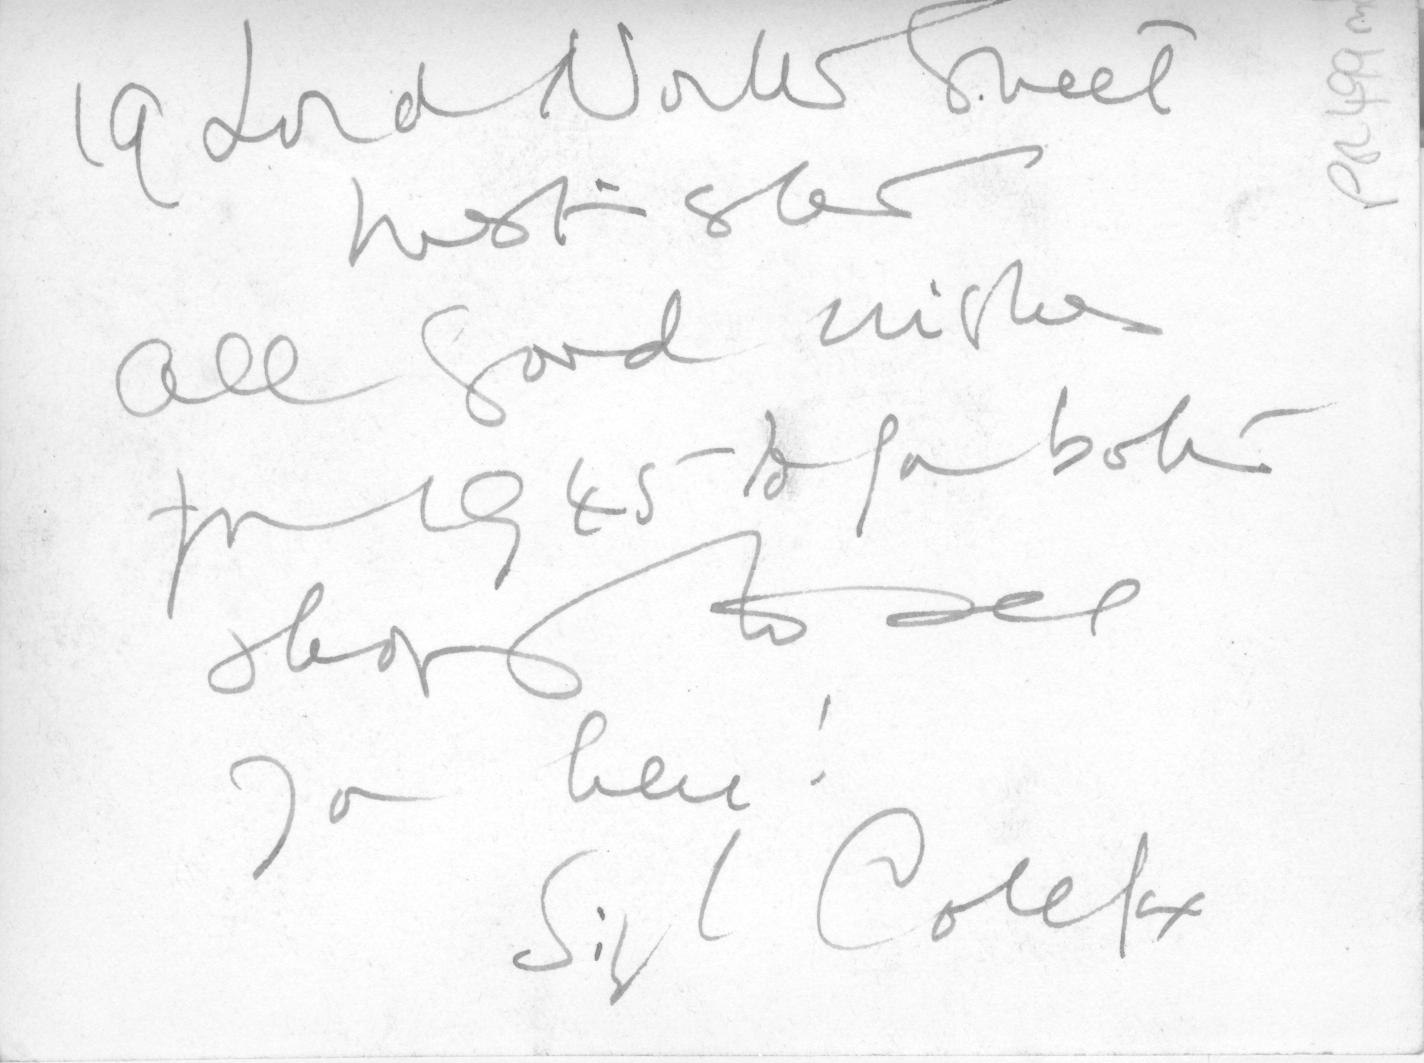 19 Lord North Street
Westminster
All good wishes
for 1945 to you both
& hoping to see
you here!
Sibyl Colefax